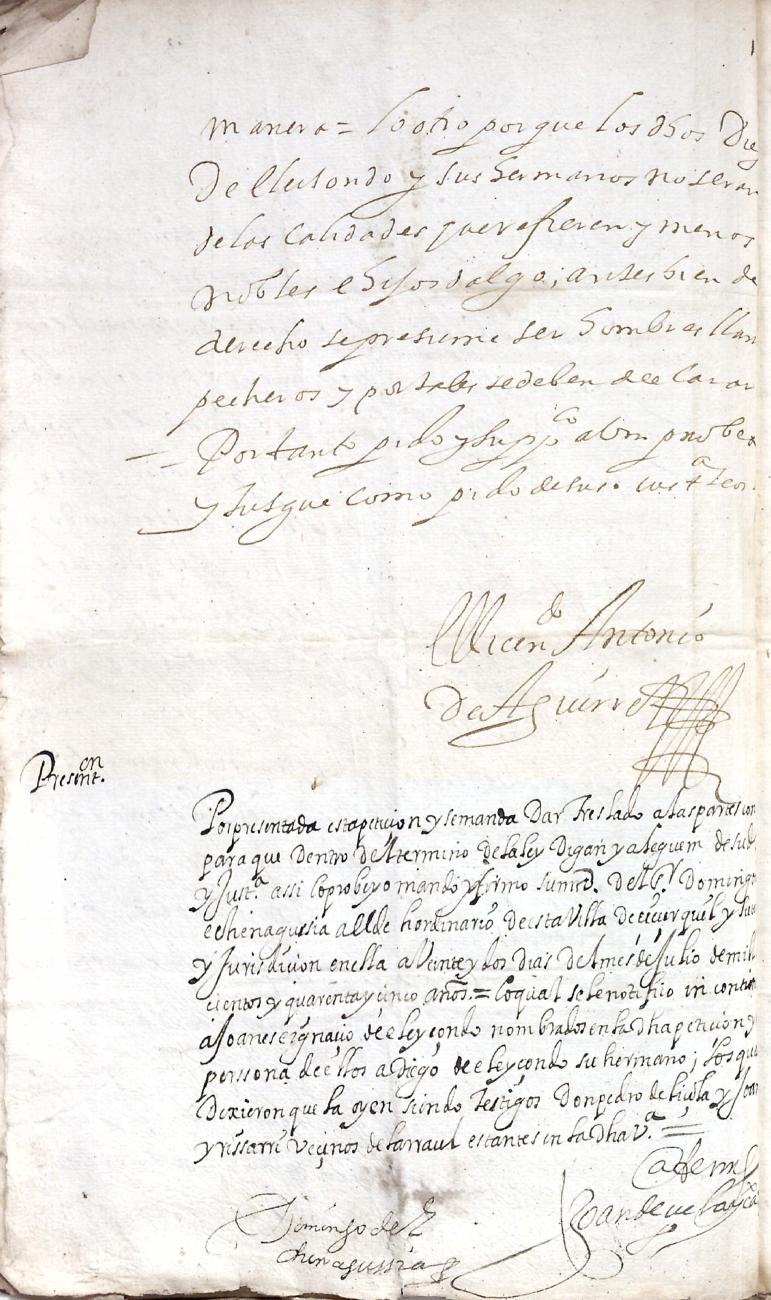 manera = Lo otro porque los dhos Die
de Elicondo y sus hermanos no seran
de las calidades que refieren y menos
nobles e hijosdalgo, antes bien de
derecho se presume ser hombres llan
pecheros y por tales se deben declarar
Por tanto pido y suppco a Vm probea
y jusgue como pido de sus. cos ta
Ellicendo Antonio
De Aguirre
Presenton
Por presentada esta peticion y se manda Dar treslado a las partes con
para que Dentro del termino de la ley Digan y aleguen de su d
y Justa. assi lo probeyo mando y firmo su mrd. del Sr Domingo
echenagussia allde hordinario de esta Villa de cicurquil y su
y Jurisdicion en ella a Veinte y dos dias del mes de Julio de mil
cientos y quarenta y cinco años. = Lo qual se le notifiio in conti
a Joanes e ygnacio de eleycondo nombrados en la dha peticion y
perssona de ellos a Diego de eleycondo su hermano; los qu
Dixieron que la oyen siendo testigos Don pedro de y Joan
yrissarri Veçinos de larraul estantes en la dha va. =
Ante mi
Domingo de E
chenagussia
Joan de